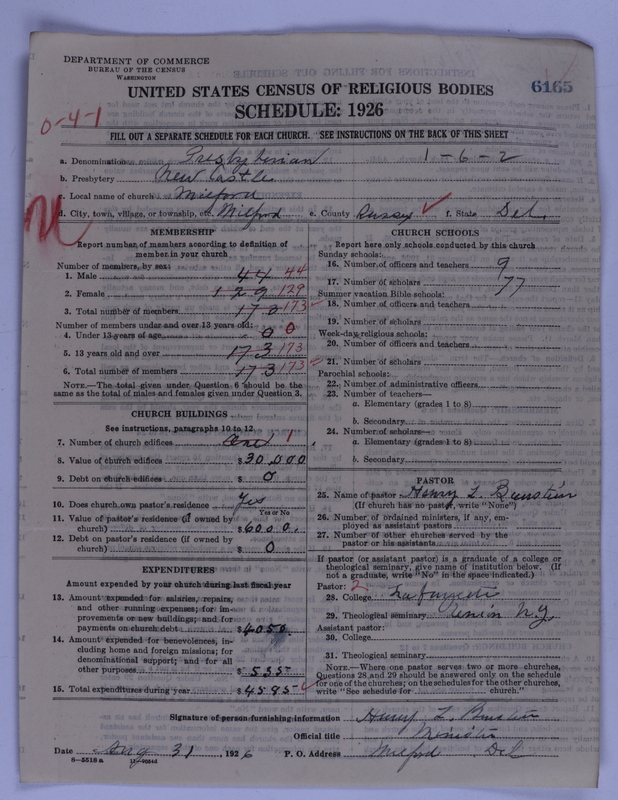 DEPARTMENT OF COMMERCE
BUREAU OF THE CENSUS
WASHINGTON
UNITED STATES CENSUS OF RELIGIOUS BODIES
6165
SCHEDULE: 1926
0-4-1
FILL OUT A SEPARATE SCHEDULE FOR EACH CHURCH. SEE INSTRUCTIONS ON THE BACK OF THIS SHEET
a. Denomination Presbyterian 1-6-2
b. Presbytery New Castle
c. Local name of church Milford
d. City, town, village, or township, etc. Milford e. County Sussex ✓ f. State Del.
MEMBERSHIP
Report number of members according to definition of
member in your church
Number of members, by sex:
1. Male 44 44
2. Female 129 129
3. Total number of members 173 173
Number of members under and over 13 years old:
4. Under 13 years of age 0 0
5. 13 years old and over 173 173
6. Total number of members 173 173
NOTE.—The total given under Question 6 should be the
same as the total of males and females given under Question 3.
CHURCH BUILDINGS
See instructions, paragraphs 10 to 12
7. Number of church edifices One 1
8. Value of church edifices $30,000
9. Debt on church edifices $ 0
10. Does church own pastor's residence Yes
Yes or No
11. Value of pastor's residence (if owned by
church) $6000.
12. Debt on pastor's residence (if owned by
church) $ 0
EXPENDITURES
Amount expended by your church during last fiscal year
13. Amount expended for salaries, repairs,
and other running expenses; for im-
provements or new buildings; and for
payments on church debt $4050.
14. Amount expended for benevolences, in-
cluding home and foreign missions; for
denominational support; and for all
other purposes $535
15. Total expenditures during year $4585 ✓
CHURCH SCHOOLS
Report here only schools conducted by this church
Sunday schools:
16. Number of officers and teachers 9
17. Number of scholars 77
Summer vacation Bible schools:
18. Number of officers and teachers
19. Number of scholars
Week-day religious schools:
20. Number of officers and teachers
21. Number of scholars
Parochial schools:
22. Number of administrative officers
23. Number of teachers—
a. Elementary (grades 1 to 8)
b. Secondary
24. Number of scholars—
a. Elementary (grades 1 to 8)
b. Secondary
PASTOR
25. Name of pastor Henry L.
(If church has no pastor, write "None")
26. Number of ordained ministers, if any, em-
ployed as assistant pastors
27. Number of other churches served by the
pastor or his assistants
If pastor (or assistant pastor) is a graduate of a college or
theological seminary, give name of institution below. (If
not a graduate, write "No" in the space indicated.)
Pastor: 2
28. College Lafayette
29. Theological seminary Union N.Y.
Assistant pastor:
30. College
31. Theological seminary
NOTE.—Where one pastor serves two or more churches,
Questions 28 and 29 should be answered only on the schedule
for one of the churches; on the schedules for the other churches,
write "See schedule for church."
Signature of person furnishing information Henry L.
Official title Minister
Date Aug 31, 1926 P. O. Address Milford Del
8-5518 a